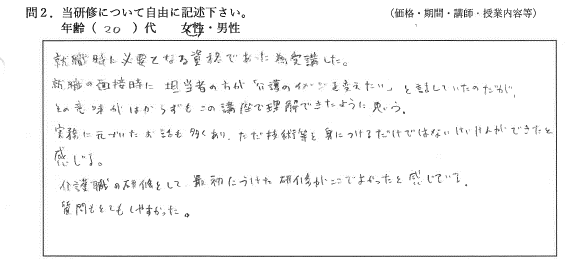 問2．当研修について自由に記述下さい。 （価格・期間・講師・授業内容等）
年齢（ 20 ）代 女性・男性
就職時に必要となる資格であった為受講した。
就職の面接時に 担当者の方が「介護のイメージを変えたい」と話していたのだが、
その意味がはからずもこの講座で理解できたように思う。
実務に元づいたお話も多くあり、ただ技術等を身につけるだけではないけいけんができたと
感じる。
介護職の研修をして、最初にうけた研修がここでよかったと感じている。
質問もとてもしやすかった。